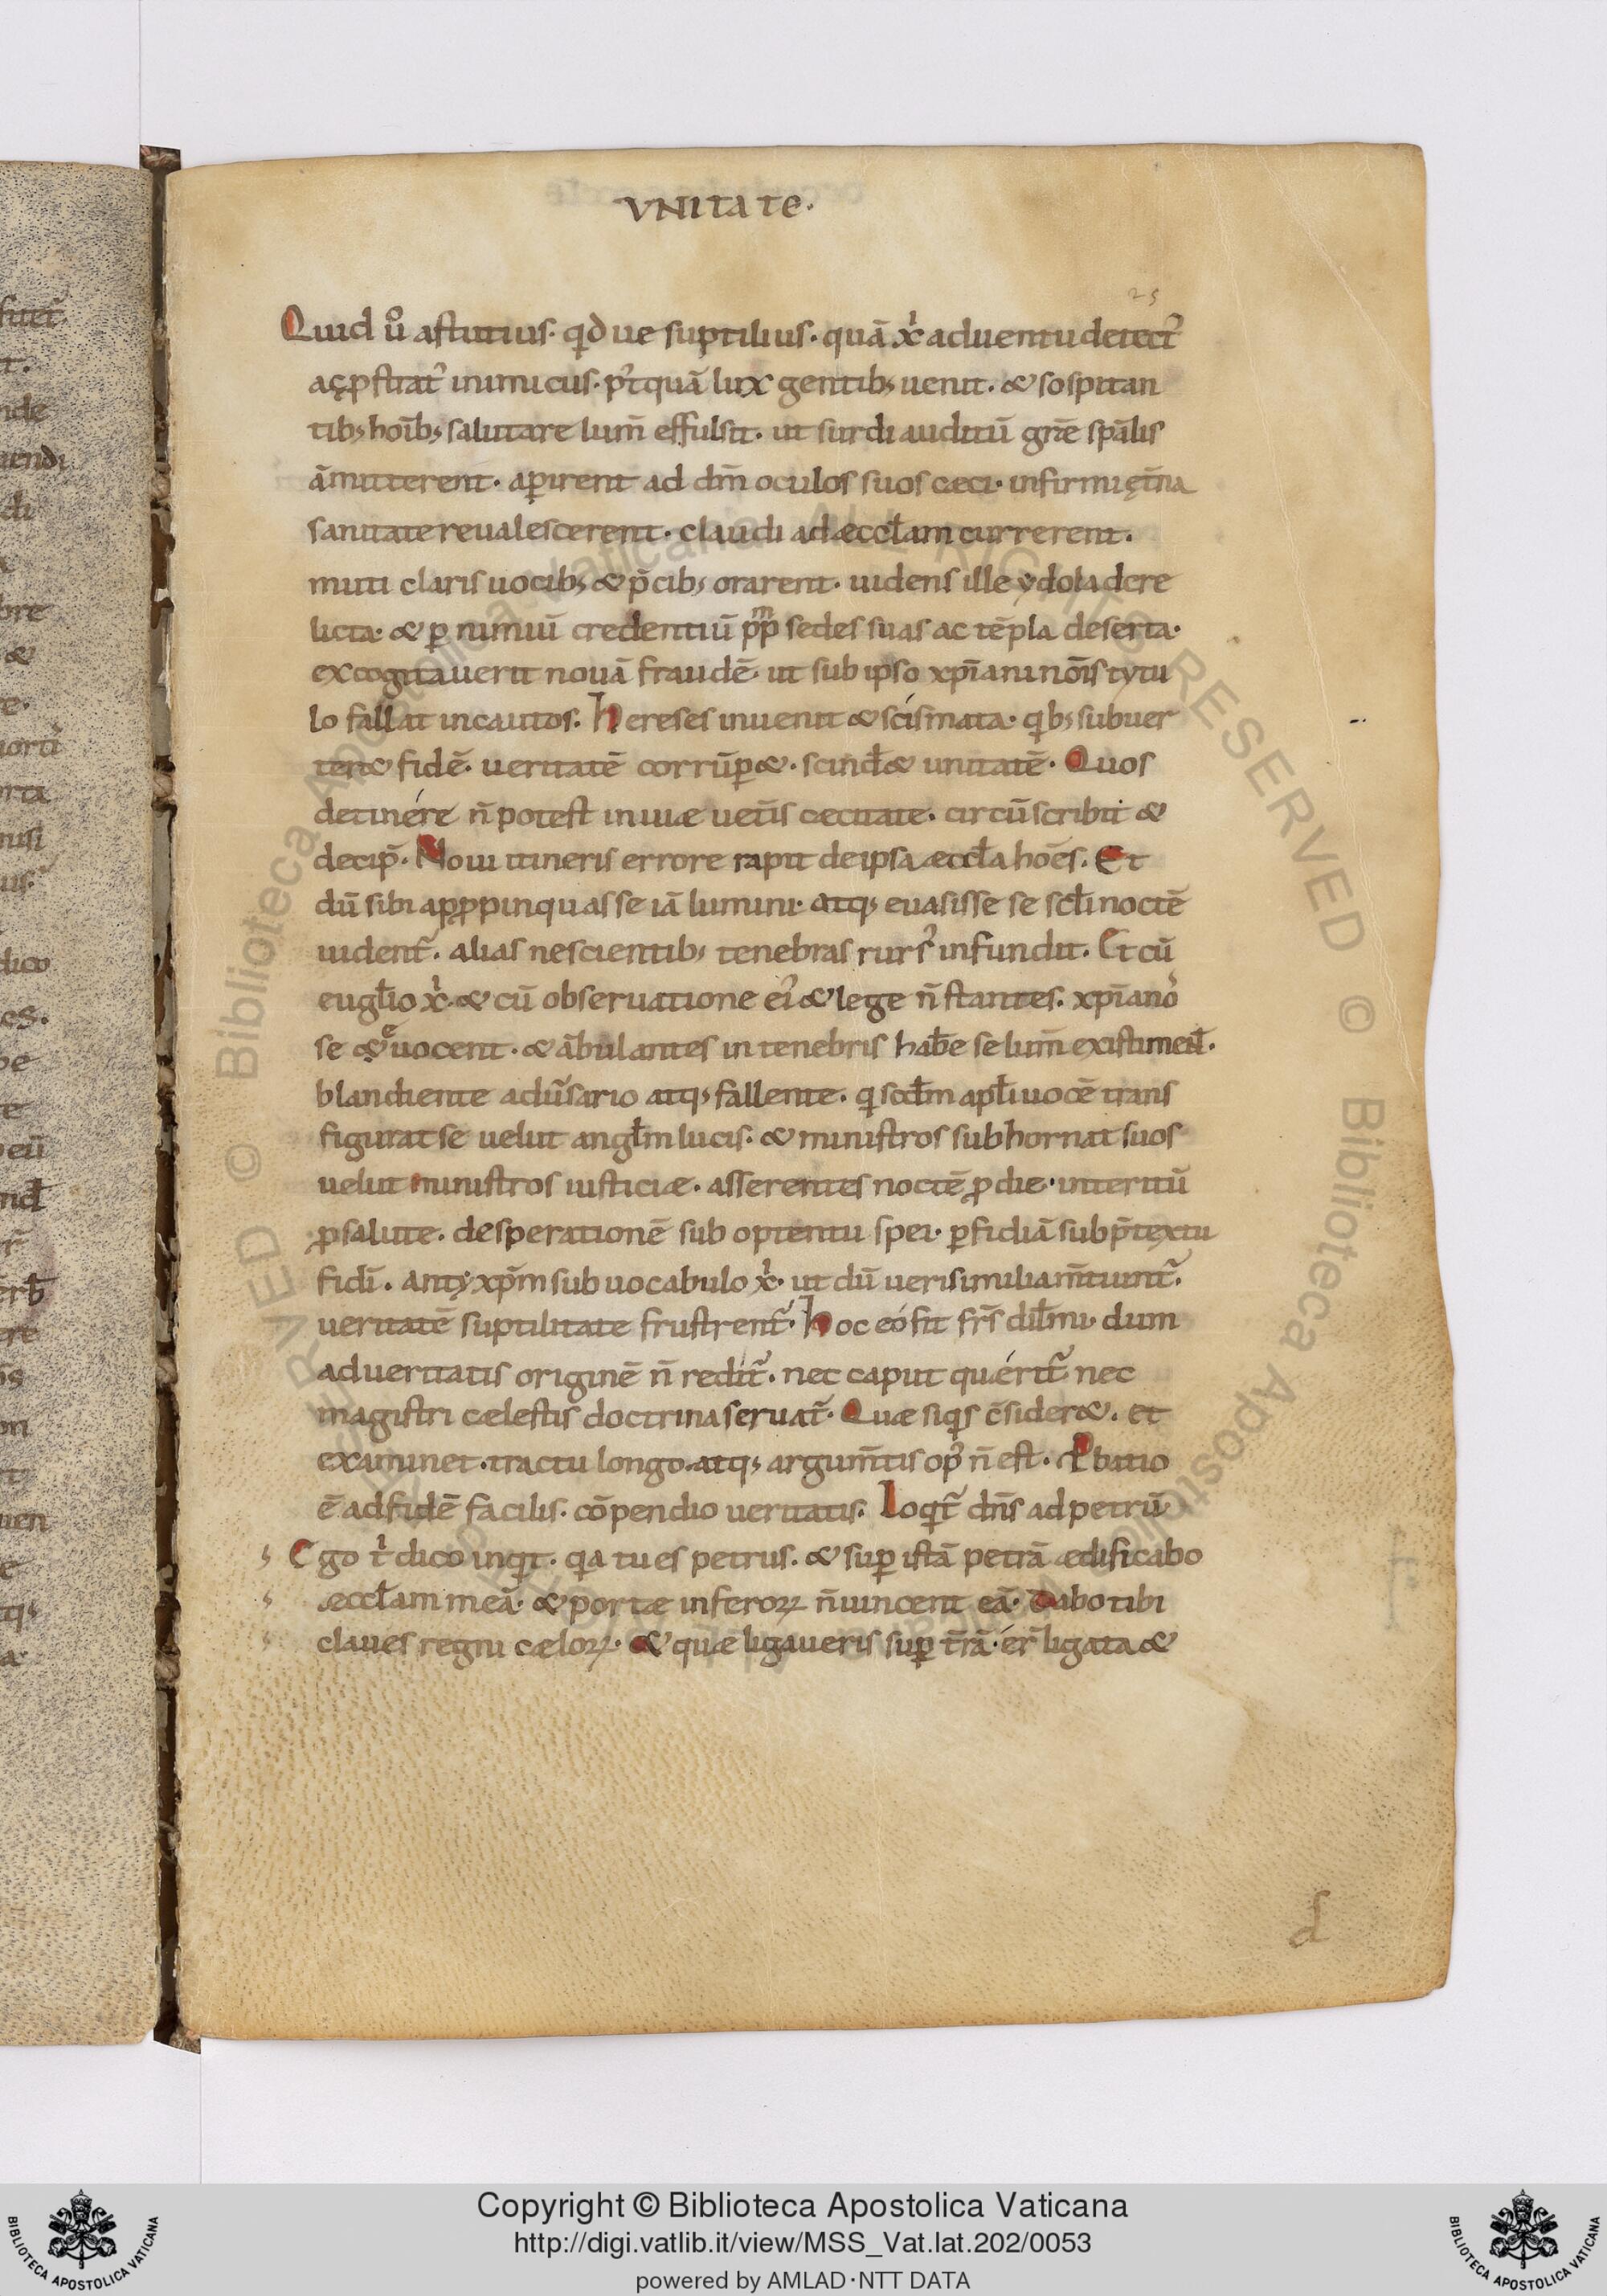 VNITATE.
25
Quid ů astutius. qd ue suptilius. quā xᷤ aduentu detectꝰ
ac ꝓstratꝰ inimicus. pꝰtquā lux gentibꝫ uenit. & sospitan
tibꝫ hoībꝫ salutare lum̄ effulsit. ut surdi auditū gr̄e spālis
āmitterent. aꝑirent ad dm̄ oculos suos ceci. infirmi ęt̄na
sanitate reualescerent. claudi ad æccl̄am currerent.
muti claris uocibꝫ & p̄cibꝫ orarent. uidens ille ydola dere
licta. & ꝑ nimiū credentiū pp̄m sedes suas ac tēpla deserta.
excogitauerit nouā fraudē. ut sub ipso xp̄iani nōis tytu
lo fallat incautos. Hereses inuenit & scismata. qibꝫ subuer
teret fidē. ueritatē corrūꝑ&. scind̄& unitatē. Quos
detinére n̄ potest in uiæ uet̄is cecitate. circūscribit &
decip̄. Noui itineris errore rapit de ipsa æccl̄a hoēs. Et
dū sibi apꝓpinquasse iā lumini. atqꝫ euasisse se scl̄i noctē
uident̄. alias nescientibꝫ tenebras rursꝰ infundit. Et cū
eugl̄io xᷤ. & cū obseruatione eiꝰ & lege n̄ stantes. xp̄iano
se &uocent. & ābulantes in tenebris hab̄e se lum̄ existiment.
blandiente aduīsario atqꝫ fallente. qi scd̄m apl̄i uocē trans
figurat se uelut angl̄m lucis. & ministros subhornat suos
uelut ministros iusticiæ. asserentes noctē ꝓ die. interitū
ꝓ salute. desperationē sub optentu spei. ꝑfidiā sub p̄textu
fidī. antyxp̄m sub uocabulo xᷤ. ut dū uerisimilia m̄tiunt̄.
ueritatē suptilitate frustrent̄. Hoc eó fit fr̄s dil̄mi. dum
ad ueritatis originē n̄ redit̄. nec caput quérit̄ nec
magistri cælestis doctrina seruat̄. Quæ siqis c̄sider&. et
examinet. tractu longo. atqꝫ argum̄tis opꝰ n̄ est. Ꝓbatio
ē ad fidē facilis. cōpendio ueritatis. Loqit̄ dn̄s ad petrū
Ego tᷤ dico inqit. qia tu es petrus. & suꝑ istā petrā ædificabo
æccl̄am meā. & portæ inferoꝝ n̄ uincent eā. Dabo tibi
claues regni cæloꝝ. & quæ ligaueris suꝑ t̄rā. ér̄ ligata &
d
Copyright © Biblioteca Apostolica Vaticana
http://digi.vatlib.it/view/MSS_Vat.lat.202/0053
powered by AMLAD·NTT DATA